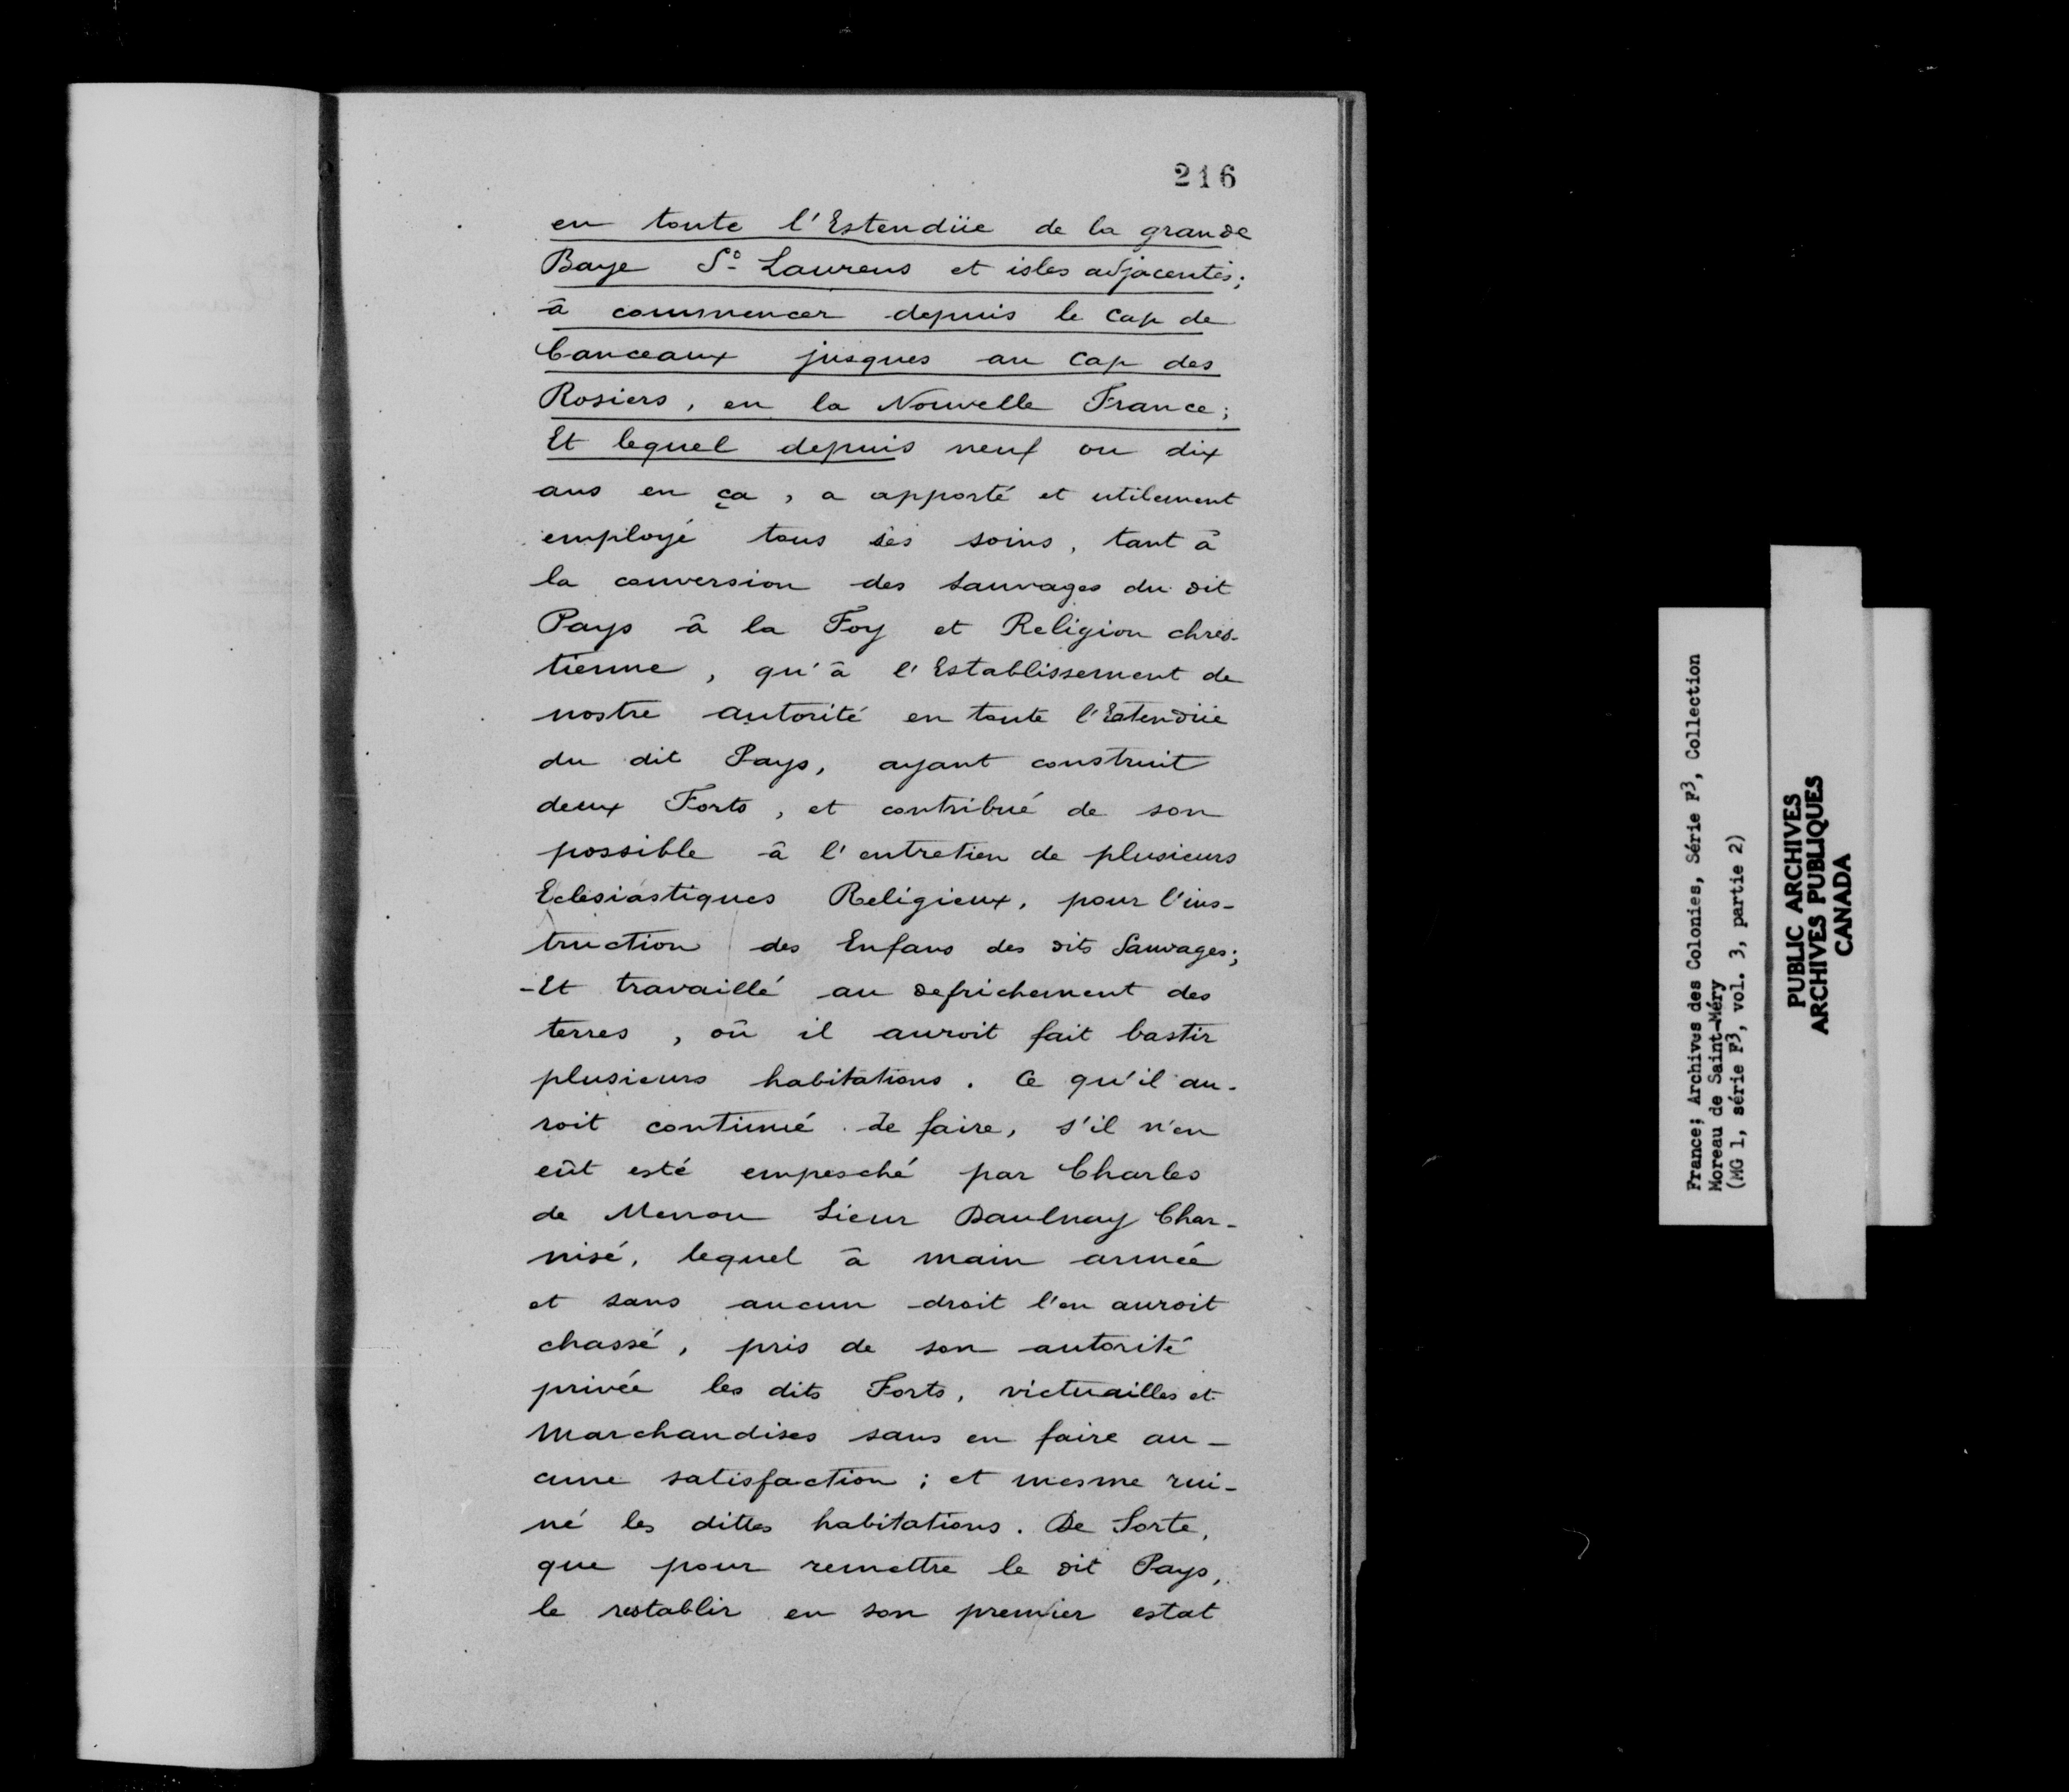 216
en toute l'Estendüe de la grande
Baye St Laurens et isles adjacentes;
à commencer depuis le Cap de
Canceaux jusques au Cap des
Rosiers, en la Nouvelle France;
Et lequel depuis neuf ou dix
ans en ça, a apporté et utilement
employé tous ses soins, tant à
la conversion des Sauvages du dit
Pays à la Foy et Religion chres-
tienne, qu'à l'Establissement de
nostre autorité en toute l'Estendüe
du dit Pays, ayant construit
deux Forts, et contribué de son
possible à l'entretien de plusieurs
Eclesiastiques Religieux, pour l'ins-
truction des Enfans des dits Sauvages;
-Et travaillé au defrichement des
terres, où il auroit fait bastir
plusieurs habitations. Ce qu'il au-
roit continué de faire, s'il n'en
eût esté empesché par Charles
de Menou Sieur Daulnay Char-
nisé, lequel à main armée
et sans aucun droit l'en auroit
chassé, pris de son autorité
privée les dits Forts, victuailles et
Marchandises sans en faire au-
cune satisfaction; et mesme rui-
né les dittes habitations. De Sorte,
que pour remettre le dit Pays,
le restablir en son premier estat
France; Archives des Colonies, Série F3, Collection
Moreau de Saint-Méry
(MG 1, série F3, vol. 3, partie 2)
PUBLIC ARCHIVES
ARCHIVES PUBLIQUES
CANADA